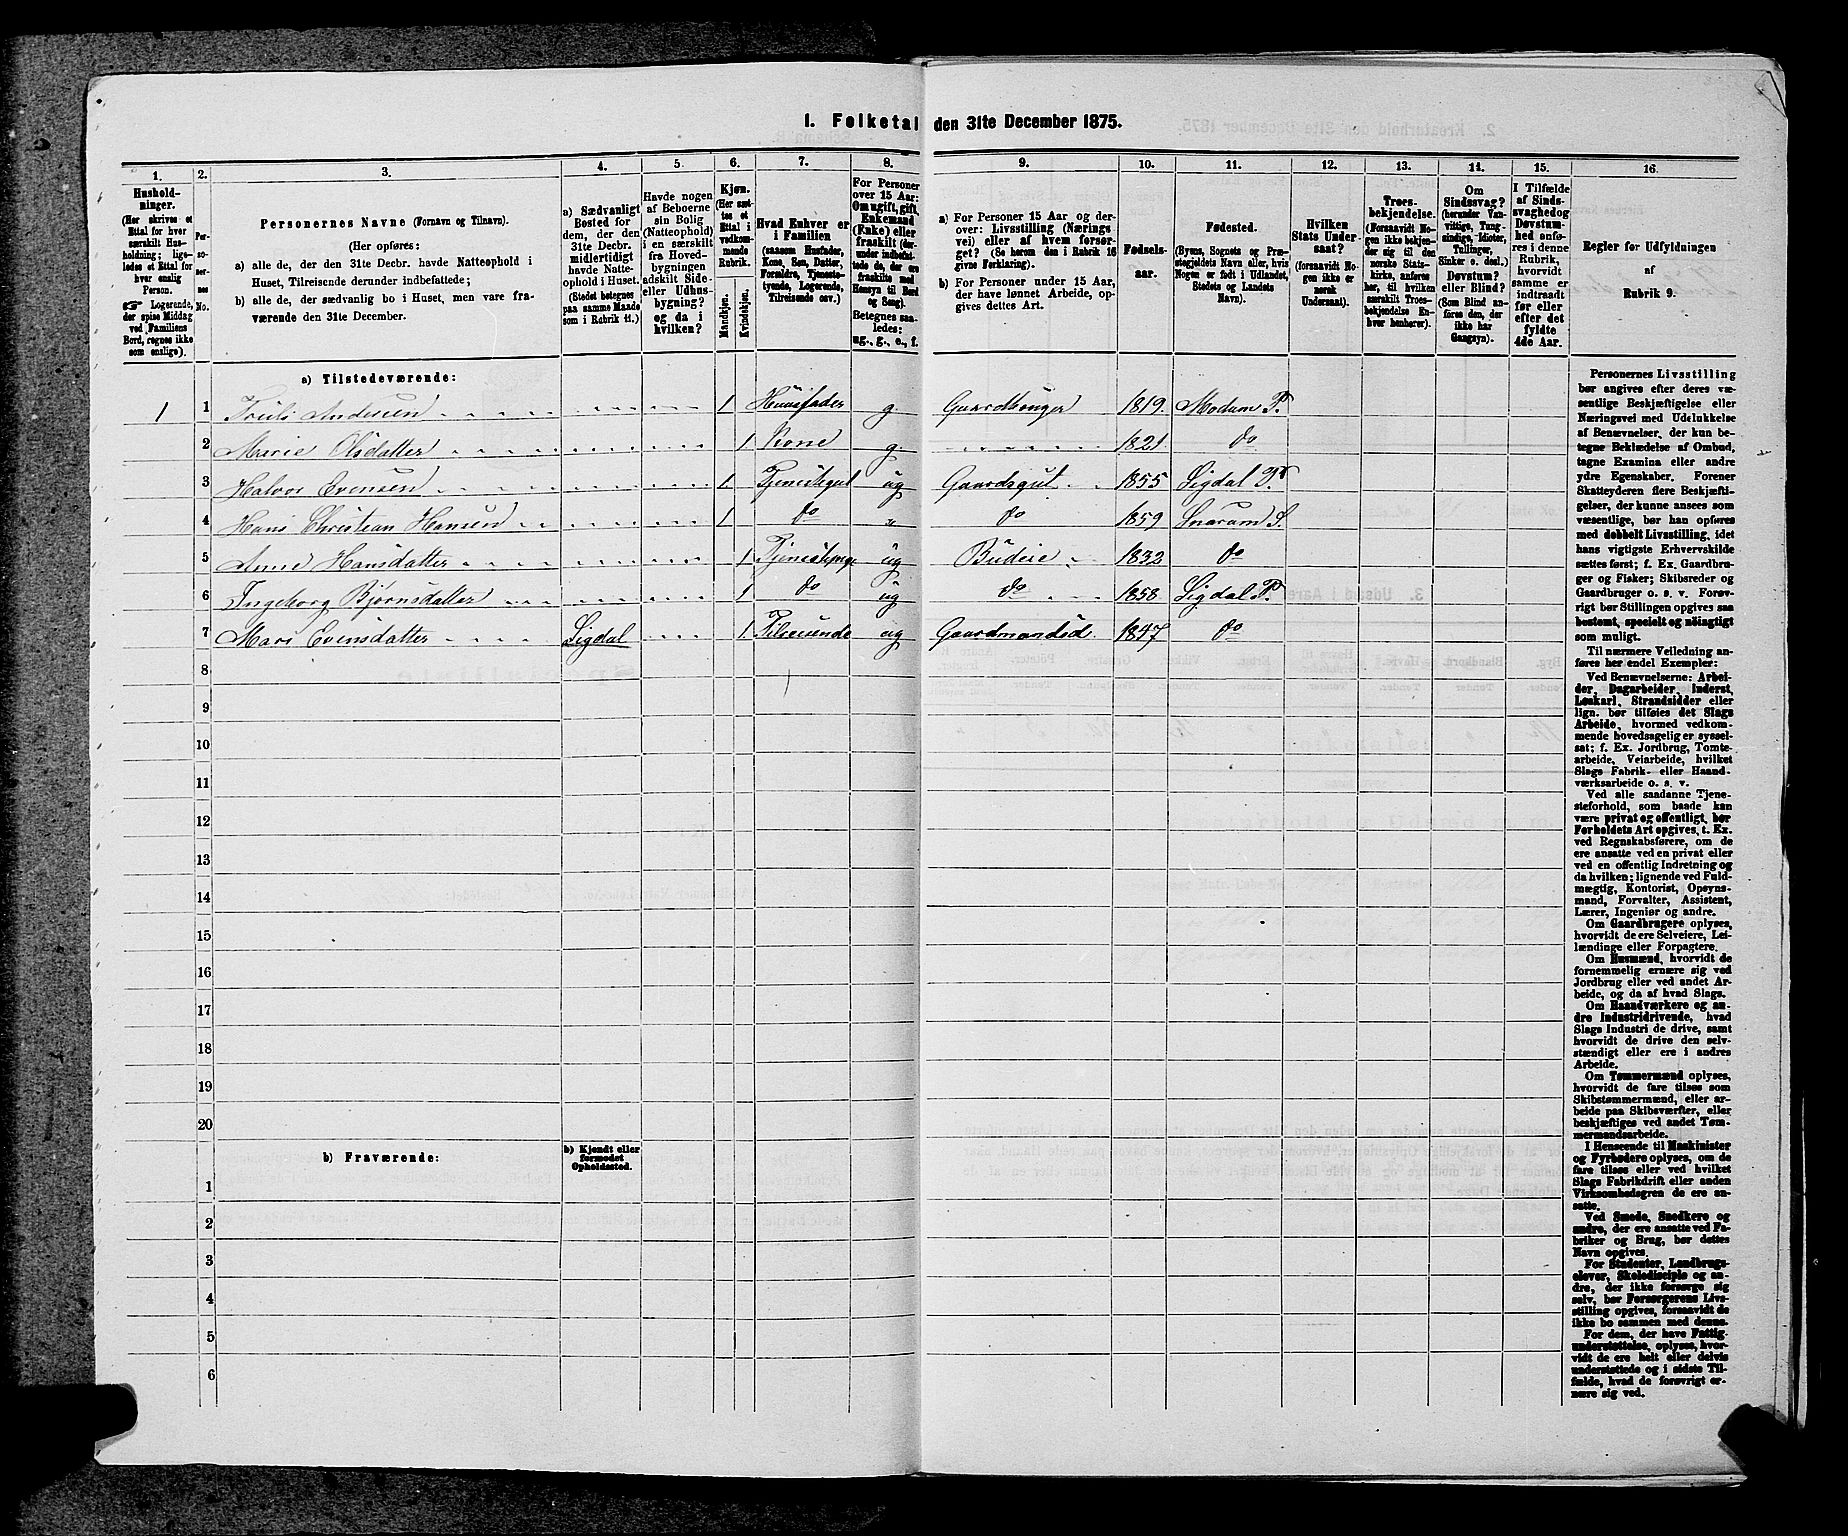 1. Folketal den 31te December 1875.
1. 2. 3. 4. 5. 6. 7. 8. 9. 10. 11. 12. 13. 14. 15. 16.
Hushold-
ninger.
(Her skrives et
Ettal for hver
særskilt Hus-
holdning; lige-
ledes et Ettal for
hver enslig
Person.
☞ Logerende,
der spise Middag
ved Familiens
Bord, regnes ikke
som enslige).
Per-
so-
ner-
nes
No.
Personernes Navne (Fornavn og Tilnavn).
(Her opføres:
a) alle de, der den 31te Decbr. havde Natteophold i
Huset, Tilreisende derunder indbefattede;
b) alle de, der sædvanlig bo i Huset, men vare fra-
værende den 31te December.
a) Sædvanligt
Bosted for
dem, der den
31te Decbr.
midlertidigt
havde Natte-
ophold i Huset.
(Stedet betegnes
paa samme Maade
som i Rubrik 11.)
Havde nogen
af Beboerne
sin Bolig
(Natteophold)
i en særskilt
fra Hoved-
bygningen
adskilt Side-
eller Udhus-
bygning?
og da i
hvilken?
Kjøn.
(Her sæt-
tes et
Ettal i
vedkom-
mende
Rubrik.
Mandkjøn.
Kvindekjøn.
Hvad Enhver er
i Familien
(saasom Husfader,
Kone, Søn, Datter,
Forældre, Tjeneste-
tyende, Logerende,
Tilreisende osv.)
For Personer
over 15 Aar:
Om ugift, gift,
Enkemand
(Enke) eller
fraskilt (der-
under indbefat-
tede de, der ere
fraskilte med
Hensyn til Bord
og Seng).
Betegnes saa-
ledes:
ug., g., e., f.
a) For Personer 15 Aar og der-
over: Livsstilling (Nærings
vei) eller af hvem forsør-
get? (Se herom den i Rubrik 16
givne Forklaring).
b) For Personer under 15 Aar,
der have lønnet Arbeide, op-
gives dettes Art.
Fødsels-
aar.
Fødested.
(Byens, Sognets og Præ-
stegjeldets Navn eller, hvis
Nogen er født i Udlandet,
Stedets og Landets
Navn).
Hvilken
Stats Under-
saat?
(forsaavidt No-
gen ikke er
norsk
Undersaat).
Troes-
bekjendelse.
(Forsaavidt No-
gen ikke bekjen-
der sig til den
norske Stats-
kirke, anføres
her, til hvilken
særskilt Troes-
bekjendelse En-
hver henhører).
Om
Sindssvag?
(herunder Van-
vittige, Tung-
sindige, Idioter,
Tullinger,
Sinker o. desl.)
Døvstum?
eller Blind?
(Som Blind an-
føres den, der
ikke har
Gangsyn).
I Tilfælde
af Sinds-
svaghed og
Døvstum-
hed anfø-
res i denne
Rubrik,
hvorvidt
samme er
indtraadt
før eller
efter det
fyldte
4de Aar.
Regler for Udfyldningen
af
Rubrik 9.
a) Tilstedeværende:
1 1 Truls Andersen 1 Huusfader g. Gaardbruger 1819. Modum P.
2 Marie Olsdatter 1 Kone g. 1821. do
3 Halvor Evensen 1 Tjenestgut ug Gaardsgut 1855 Sigdal P.
4 Hans Christian Hansen 1 do " do 1859 Snarum S.
5 Anne Hansdatter 1 ug Budeie 1832 do
6 Ingeborg Bjørnsdatter 1 do ug do 1858 Sigdal P.
7 Mari Evensdatter Sigdal 1 Tilreisende ug Gaardmandsd. 1847 do
8
9
10
11
12
13
14
15
16
17
18
19
20
b) Fraværende:
b) Kjendt eller
formodet
Opholdssted.
1
2
3
4
5
6
Personernes Livsstilling
bør angives efter deres væ-
sentlige Beskjæftigelse eller
Næringsvei med Udelukkelse
af Benævnelser, der kun be-
tegne Beklædelse af Ombud,
tagne Examina eller andre
ydre Egenskaber. Forener
Skatteyderen flere Beskjæfti-
gelser, der kunne ansees som
væsentlige, bør han opføres
med dobbelt Livsstilling, idet
hans vigtigste Erhvervskilde
sættes først; f. Ex. Gaardbru-
ger og Fisker; Skibsreder og
Gaardbruger o. s. v. Forøv-
rigt bør Stillingen opgives saa
bestemt, specielt og nøiagtigt
som muligt.
Til nærmere Veiledning an-
føres her endel Exempler:
Ved Benævnelserne: Arbei-
der, Dagarbeider, Inderst,
Løskarl, Strandsidder eller
lign. bør tilføies det Slags
Arbeide, hvormed vedkom-
mende hovedsagelig er syssel-
sat; f. Ex. Jordbrug, Tomte-
arbeide, Veiarbeide, hvilket
Slags Fabrik- eller Haand-
værksarbeide o. s. v.
Ved alle saadanne Tjene-
steforhold, som baade kan
være privat og offentligt, bør
Forholdets Art opgives, t. Ex.
ved Regnskabsførere, om de
ere ansatte ved en privat eller
ved en offentlig Indretning og
da hvilken; lignende ved Fuld-
mægtig, Kontorist, Opsyns-
mand, Forvalter, Assistent,
Lærer, Ingeniør og andre.
Om Gaardbrugere oplyses,
hvorvidt de ere Selveiere, Lei-
lændinge eller Forpagtere.
Om Husmænd, hvorvidt de
fornemmelig ernære sig ved
Jordbrug eller ved andet Ar-
beide, og da af hvad Slags.
Om Haandværkere og an-
dre Industridrivende, hvad
Slags Industri de drive, samt
hvorvidt de drive den selv-
stændigt eller ere i andres
Arbeide.
Om Tømmermænd oplyses,
hvorvidt de fare tilsøs som
Skibstømmermænd, eller ar-
beide paa Skibsværfter, eller
beskjæftiges ved andet Tøm-
mermandsarbeide.
I Henseende til Maskinister
og Fyrbødere oplyses, om de
fare tilsøs eller ved hvilket
Slags Fabrikdrift eller anden
Virksomhedsgren de ere an-
satte.
Ved Smede, Snedkere og
andre, der ere ansatte ved Fa-
briker og Brug, bør dettes
Navn opgives.
For Studenter, Landbrugs-
elever, Skoledisciple og an-
dre, der ikke forsørge sig
selv, bør Forsørgerens Livs-
stilling opgives, forsaavidt de
ikke bo sammen med denne.
For dem, der have Fattig-
understøttelse, oplyses, hvor-
vidt de ere helt eller delvis
understøttede og i sidste Til-
fælde, hvad de forøvrigt er-
nære sig ved.